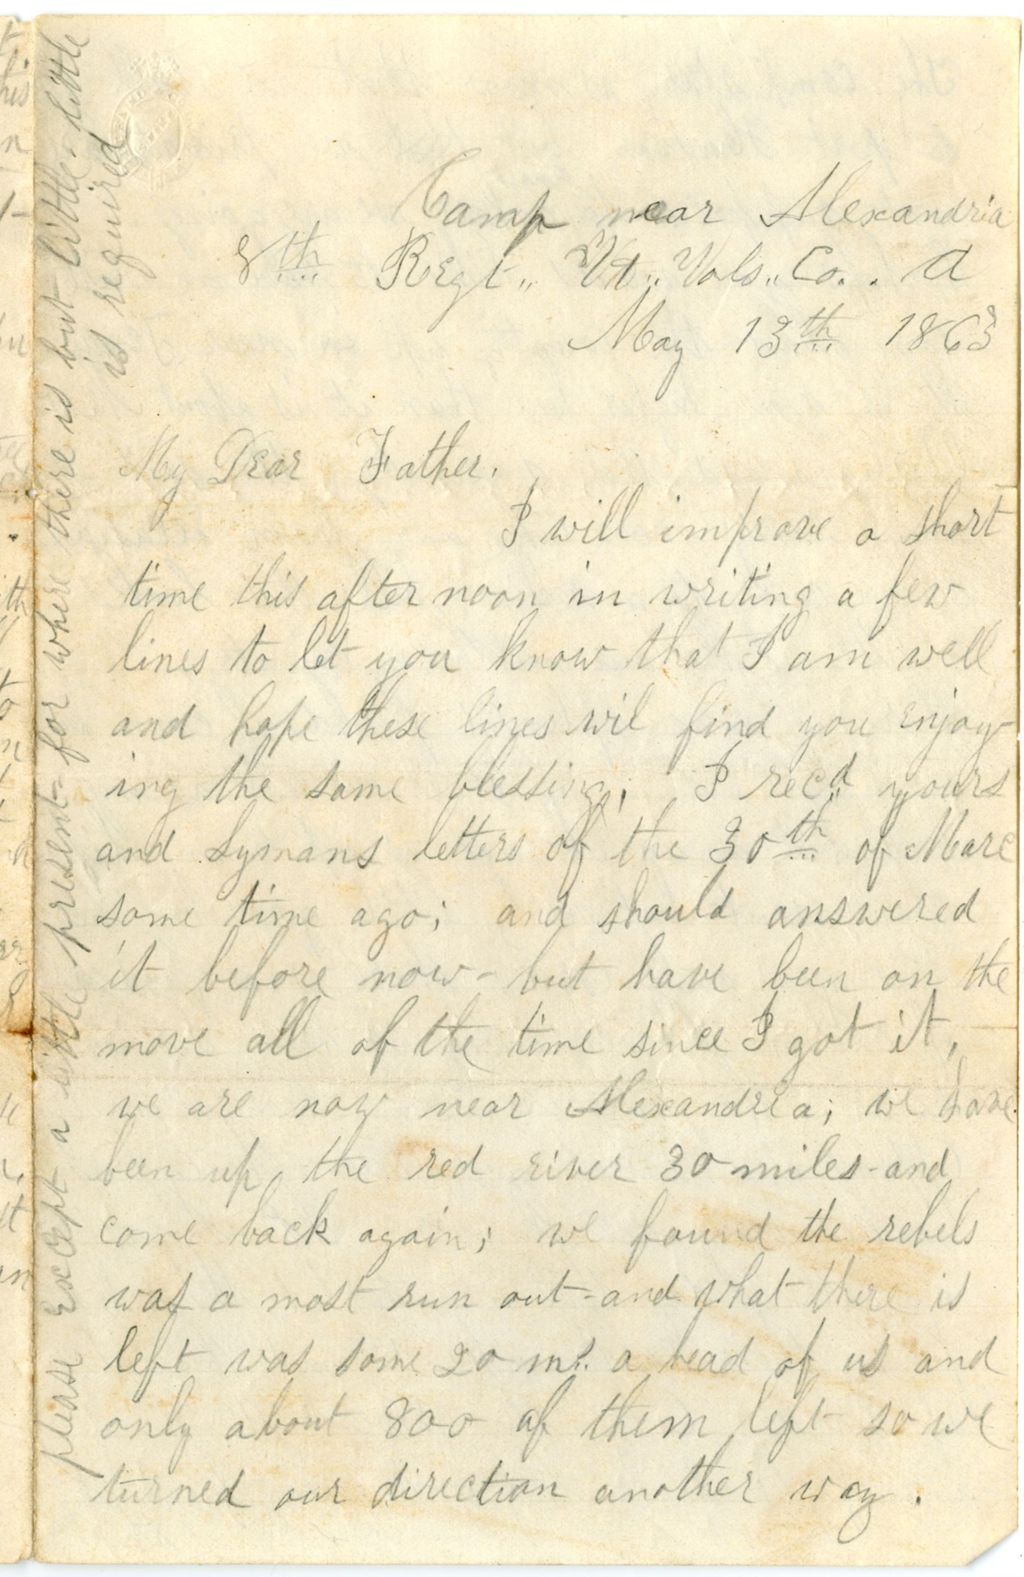 Camp near Alexandria
8th Regt,, Vt,, Vols,, Co. . A
May 13th 1863
My Dear Father.
I will improve a short
time this after noon in writing a few
lines to let you know that I am well
and hope these lines wil find you enjoy-
ing the same blessing; I recd yours
and Lymans letters of the 30th of Marc
some time ago; and should answered
it before now- but have been on the
move all of the time since I got it,
we are now near Alexandria; we have
been up the red river 30 miles-and
come back again; we found the rebels
was a most run out-and what there is
left was some 20 ms. a head of us and
only about 800 of them left so we
turned our direction another way.
please except a little present-for where there is but little-little
is required